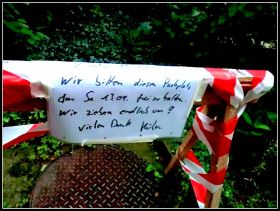 Wir bitten diesen Parkplatz
den Sa 13.09. freizuhalten.
Wir ziehen endlich um!
Vielen Dank